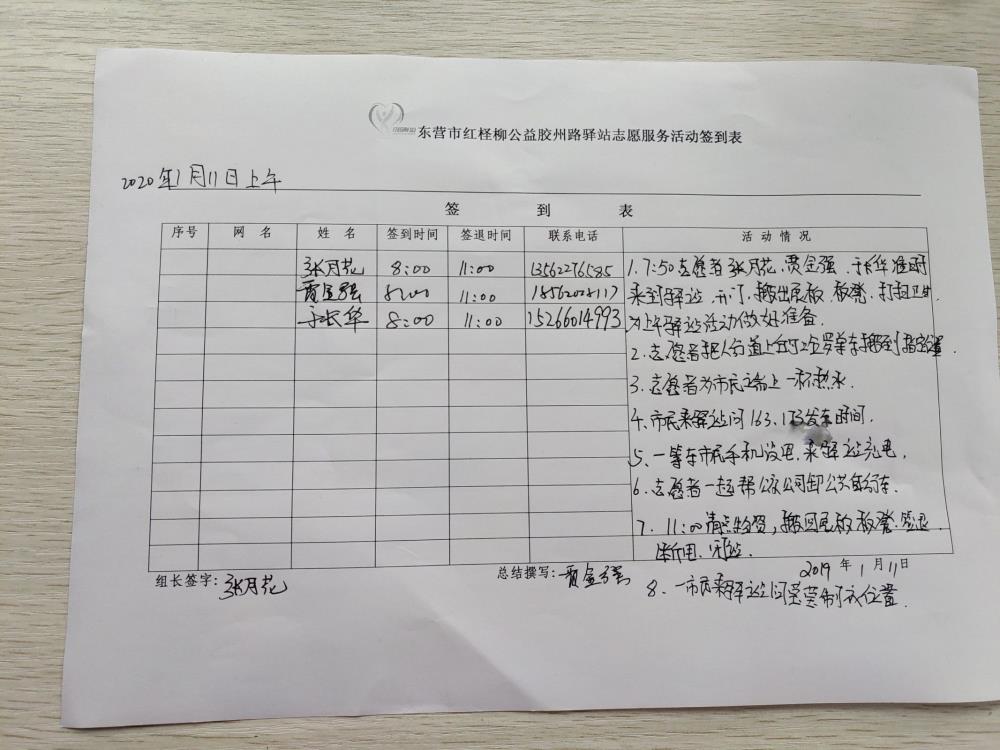 东营市红柽柳公益胶州路驿站志愿服务活动签到表
2020年1月11日上午
签 到 表
序号 网 名 姓 名 签到时间 签退时间 联系电话 活 动 情 况
张月花 8:00 11:00 13562276585
贾金强 8:00 11:00 18562028117
于长华 8:00 11:00 15266014993
1. 7:50志愿者张月花、贾金强、于长华准时
来到驿站、开门、搬出展板、板凳、打扫卫生
为上午驿站活动做好准备.
2. 志愿者把人行道上的2个单车搬到指定位置.
3. 志愿者为市民端上一杯热水.
4. 市民来驿站问163、173发车时间.
5. 一等车市民手机没电,来驿站充电.
6. 志愿者一起帮公交公司卸公共自行车.
7. 11:00清点物资,搬回展板、板凳.签退.
断电、闭站.
组长签字:张月花 总结撰写:贾金强 2019年1月11日
8. 一市民来驿站问位置.